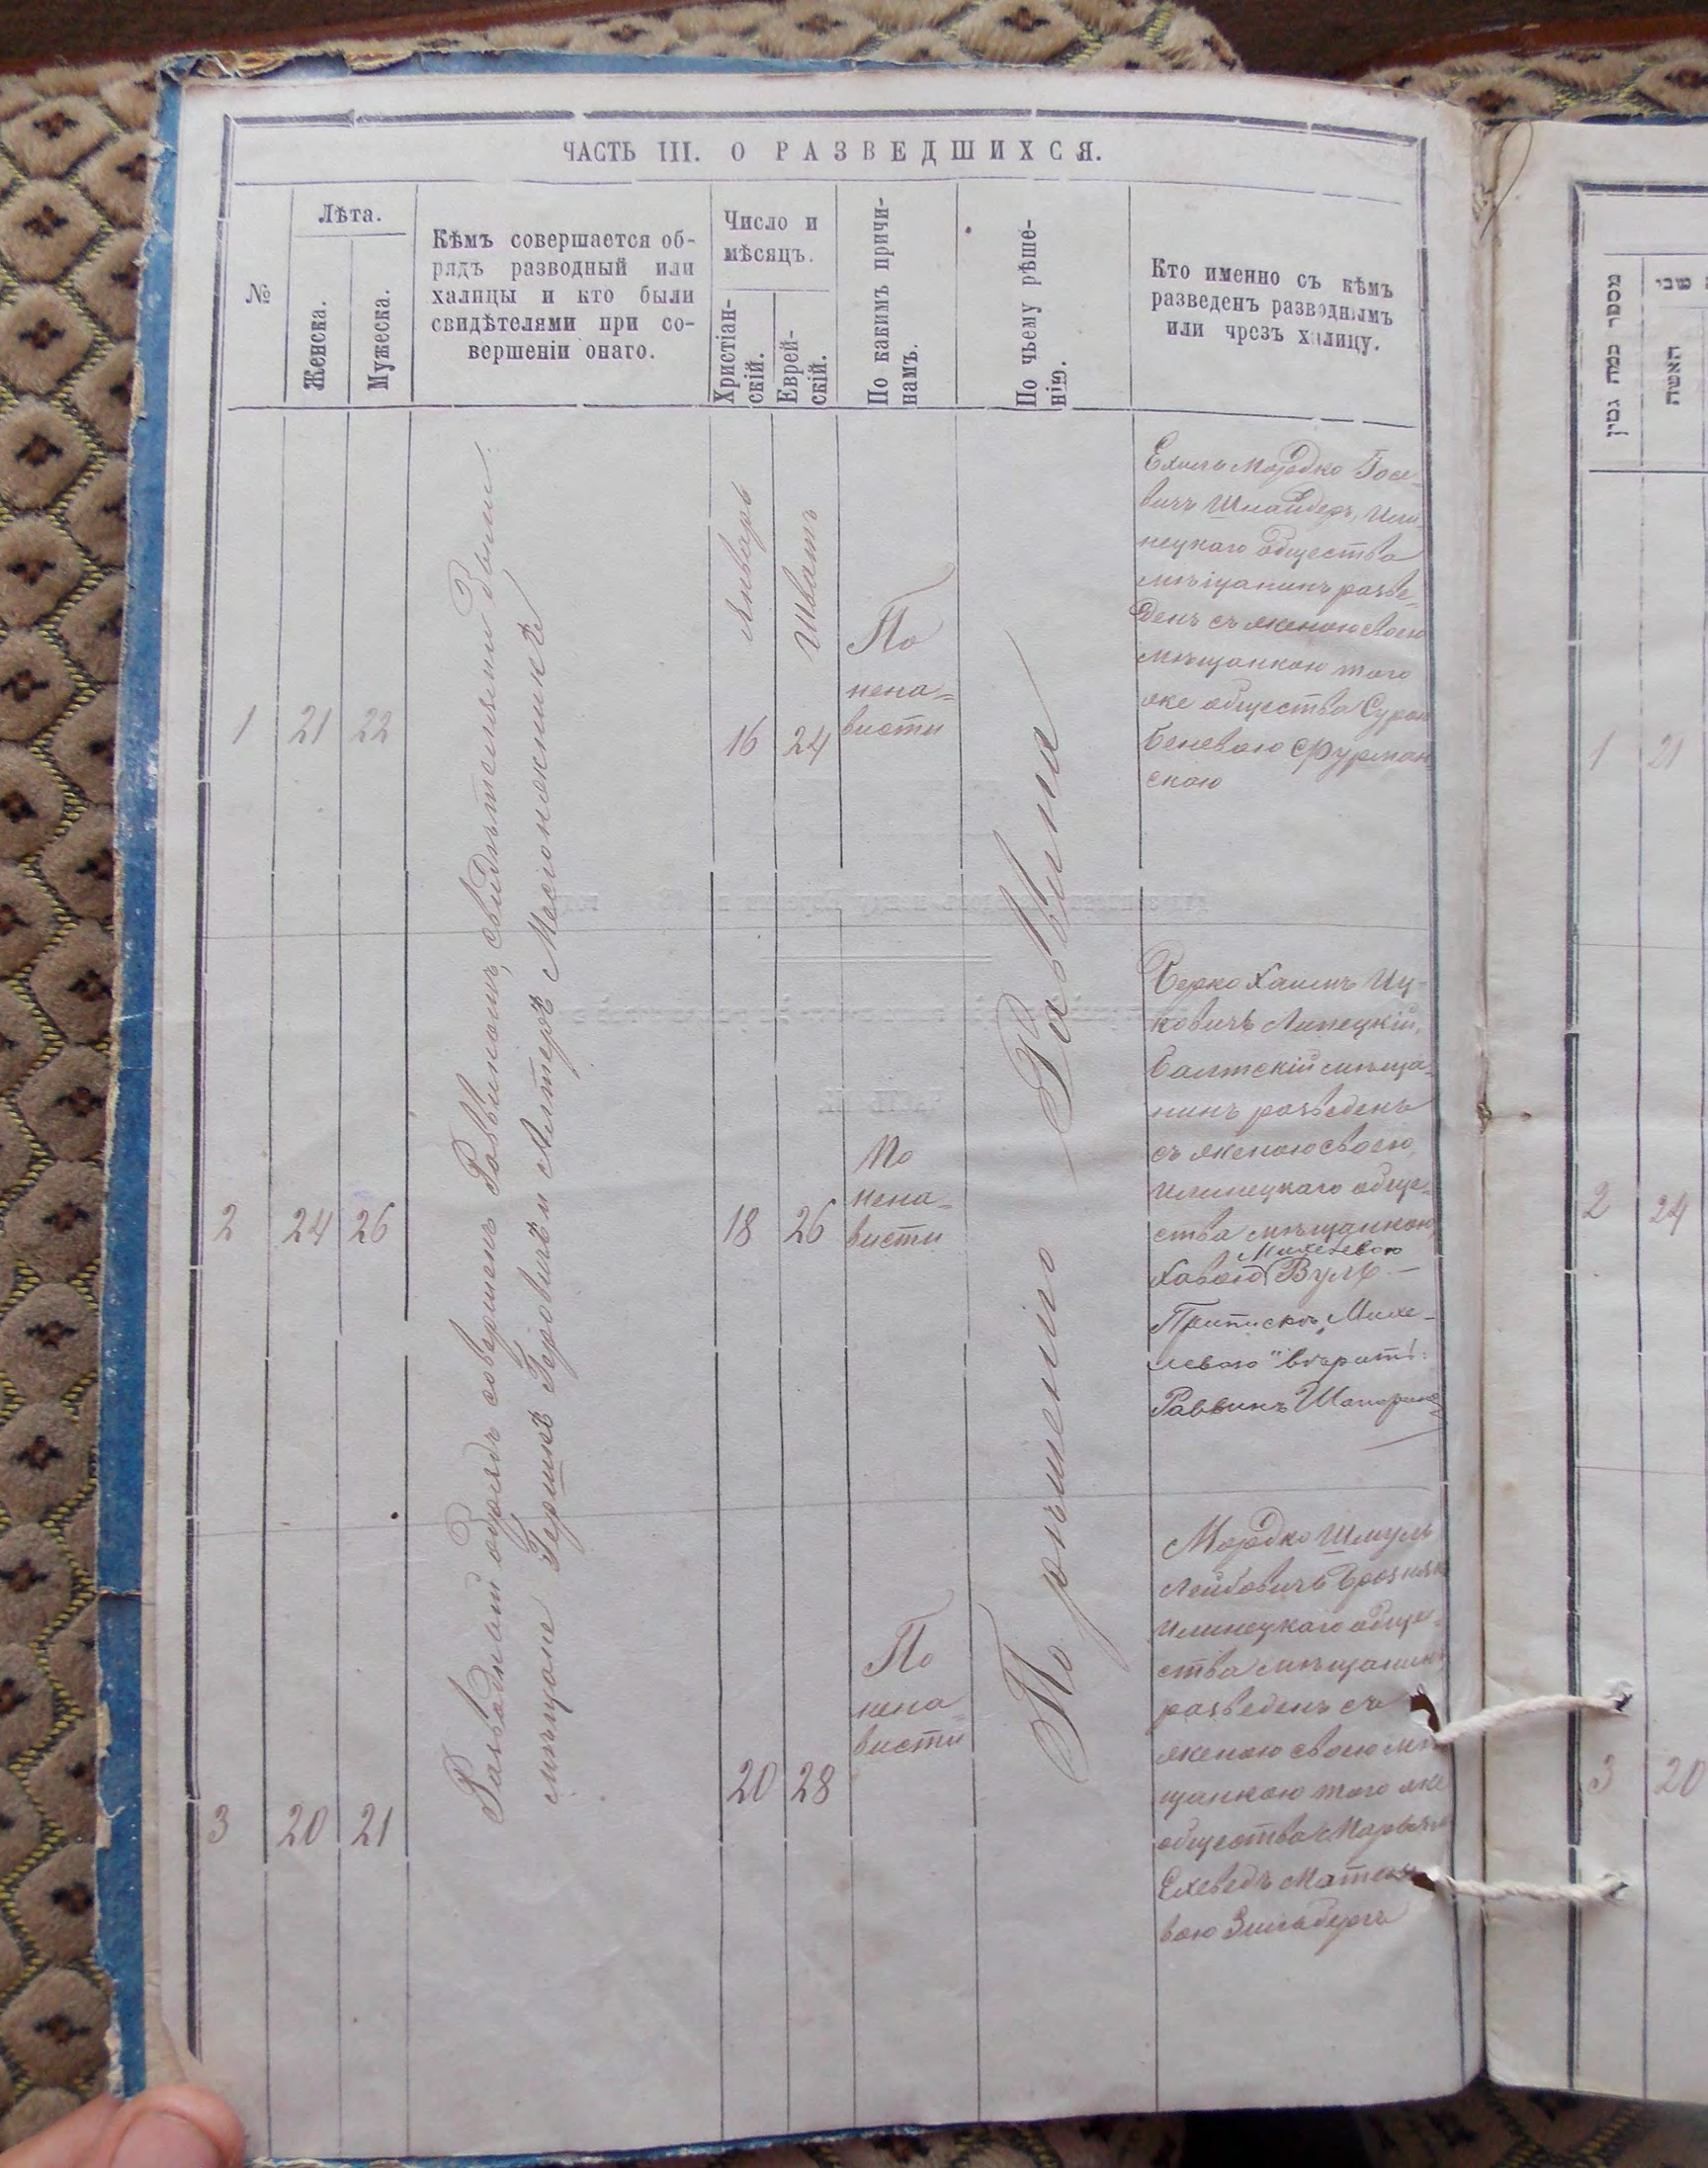 ЧАСТЬ III. О РАЗВЕДШИХСЯ.
№
Лѣта.
Женска.
Мужеска.
Кѣмъ совершается об-
рядъ разводный или
халицы и кто были
свидѣтелями при со-
вершеніи онаго.
Число и
мѣсяцъ.
Христіан-
скій.
Еврей-
скій.
По какимъ причи-
намъ.
По чьему рѣше-
нію.
Кто именно съ кѣмъ
разведенъ разводнымъ
или чрезъ халицу.
Разводный обрядъ совершенъ Раввиномъ, свидѣтелями были
мѣщане Гершко Герович и Алтеръ
По рѣшенію Раввина
1
21
22
Январь
16
Шватъ
24
По
нена=
висти
Ехиль Мордко Іосе-
вичъ Шнайдеръ, Или-
нецкаго общества
мѣщанинъ разве-
денъ съ женою своею
мѣщанкою того
же общества Сурою
Беневою Фурман-
скою
2
24
26
18
26
По
нена=
висти
Берко Хаимъ Иц-
ковичъ Липецкій,
Балтскій мѣща-
нинъ разведенъ
съ женою своею,
Илинецкаго обще-
ства мѣщанкою
Михелевою
Хавою Вулъ —
Приписка „Михе-
левою" вѣрать:
Раввинъ
3
20
21
20
28
По
нена=
висти
Мордко Шмуль
Лейбовичъ
Илинецкаго обще-
ства мѣщанинъ
разведенъ съ
женою своею мѣ
щанкою того же
общества
Ехеведъ
вою Зильберг
מספר כמה גטין
שני
האשה
1
21
2
24
3
20